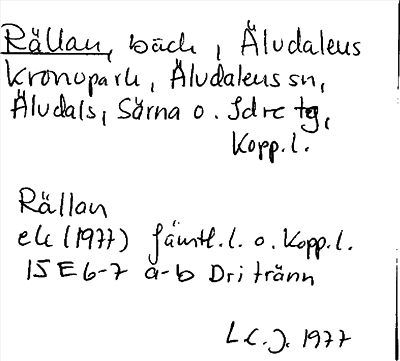 Rällan, bäck, Äludalens
kronopark, Äludalens sn,
Äludals, Särna o. Idre tg,
Kopp.l.
Rällan
ek (1977) Jämtl.l. o. Kopp.l.
15E 6-7 a-b
1977